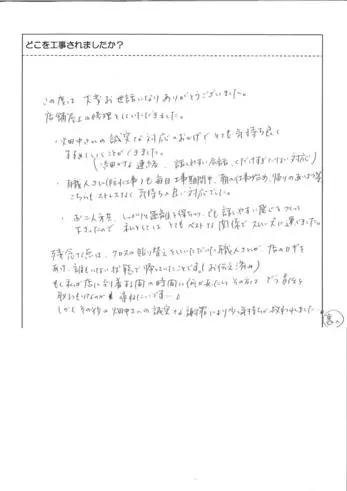 どこを工事されましたか？
この度は大変お世話になりありがとうございました。
店舗屋上の修理をしていただきました。
・畑中さんの誠実な対応のおかげでとても気持ち良く
すすめていくことができました。
(な連絡、話しやすい会話、くだけすぎていない対応)
・職人さん(も毎日工事期間中、朝の仕事始め、帰りのあいさつ等
こちらもストレスなく気持ちの良い対応でした。
・お二人共、しっかりと距離を保ちつつ、でも話しやすい感じをつくって
下さったので私としてはとてもベストな関係でスムーズに運べました。
残念な点は、クロスの貼り替えをしていただいた職人さんが、店のカギを
あけ、誰もいない状態で帰っていたことです。(お伝え済み)
もし私が店に到着する間の時間に何かあったらその方はどう責任を
しかしその後の畑中さんの誠実な謝罪により少し気持ちが救われました。
裏へ